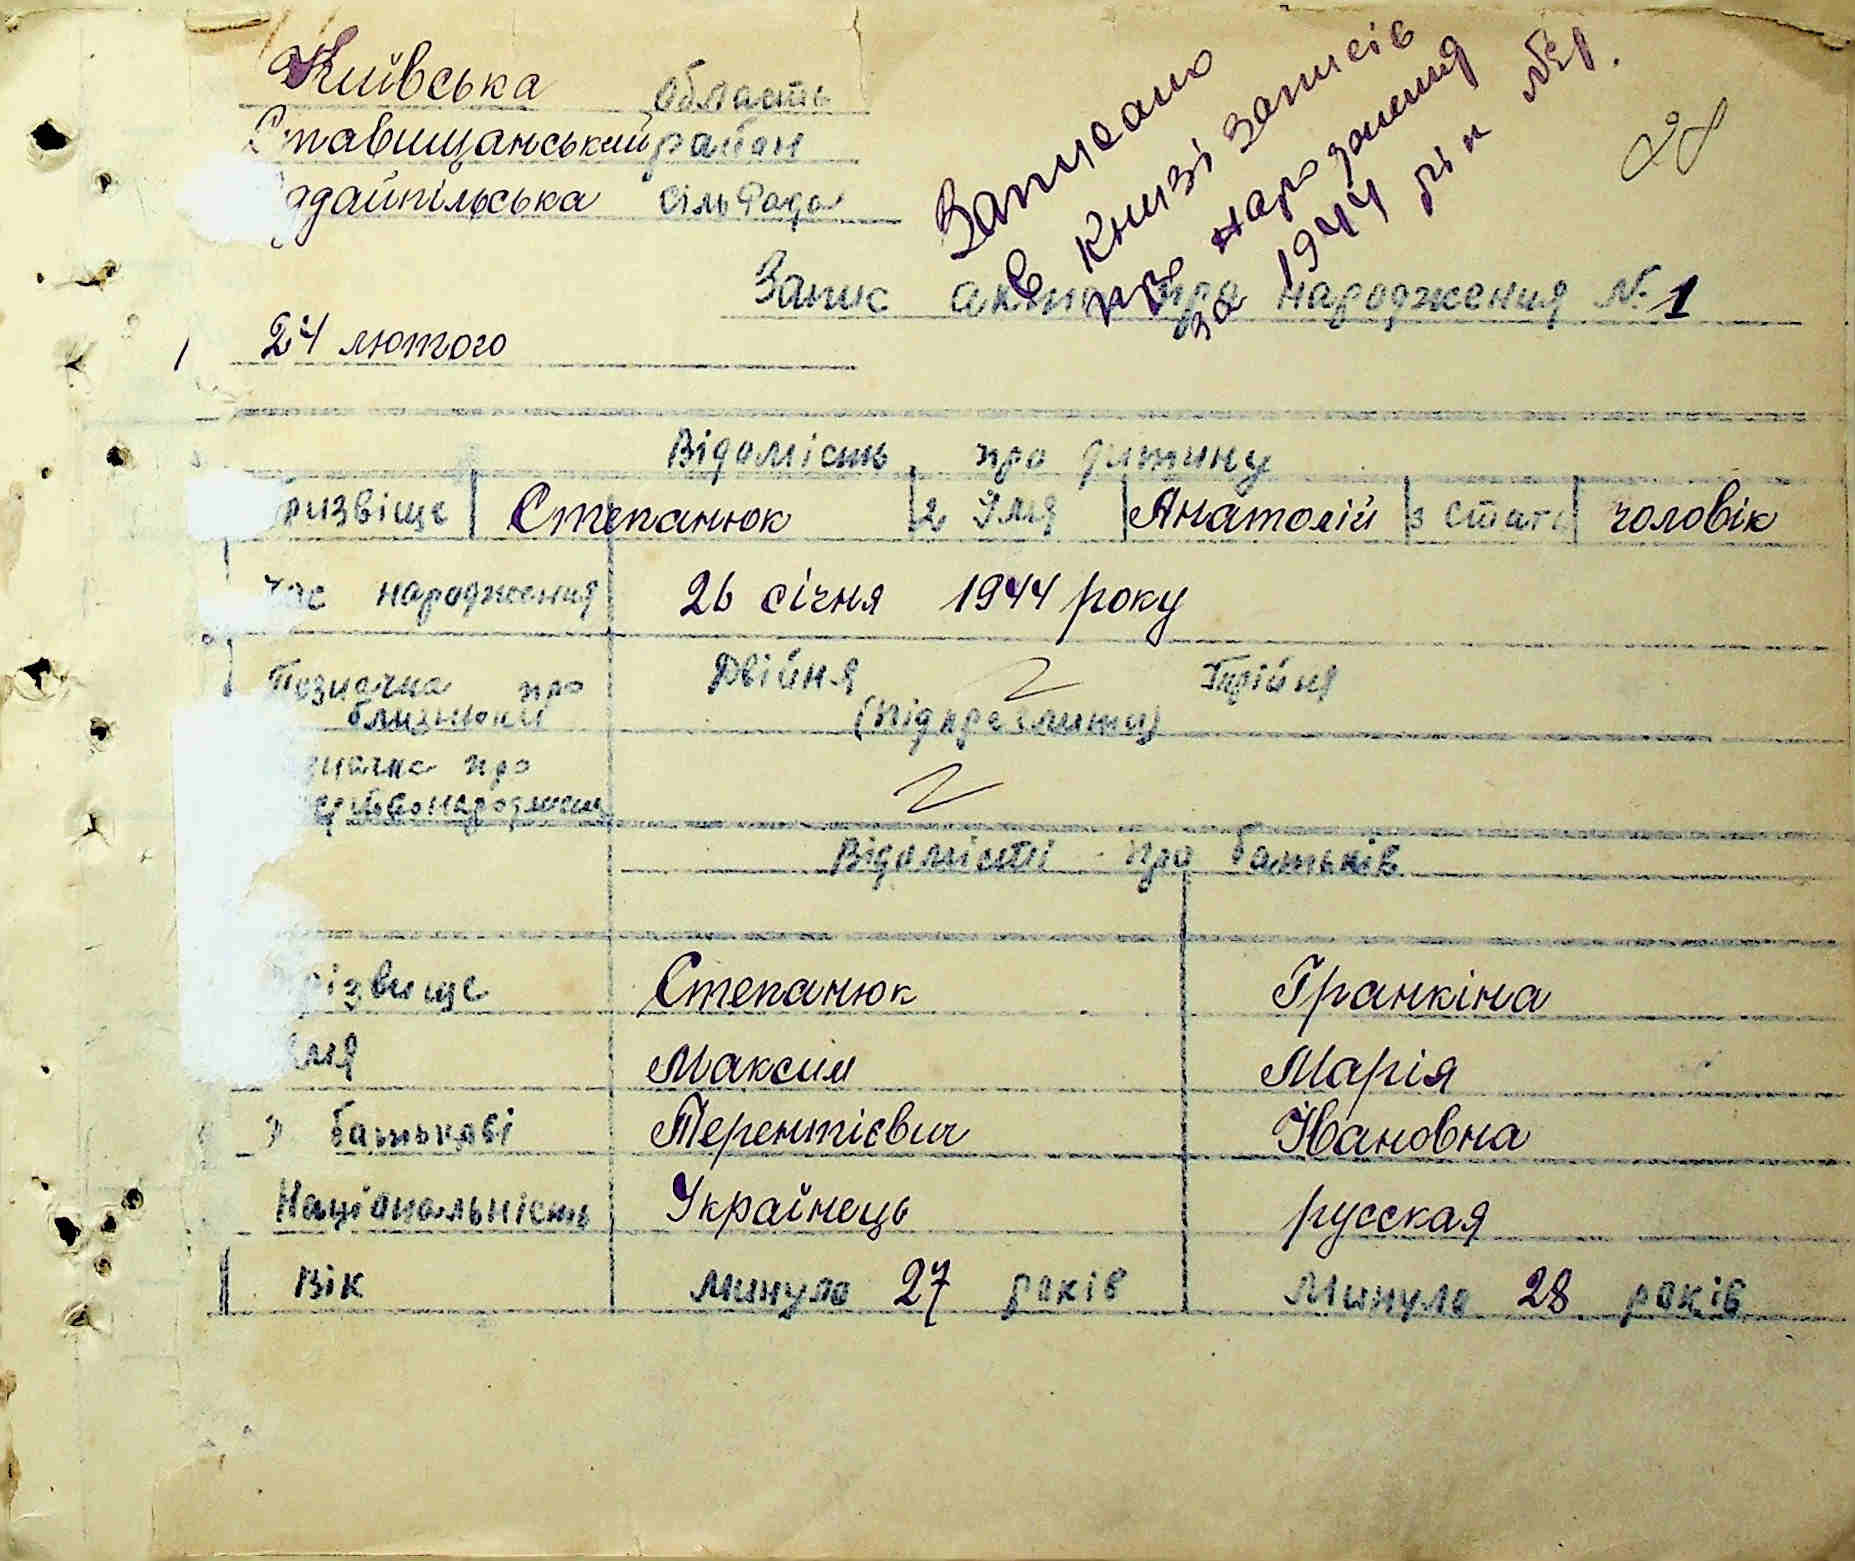 Київська область
Ставищанський район
адайпільська сільрада
Записано
в книзі записів
про народження
за 1944 рік №1.
28
Запис акта про народження № 1
24 лютого
Відомість про дитину
ризвіще Степанюк 2 Імя Анатолій 3 стать чоловік
час народження 26 січня 1944 року
Позначка про близнюки Двійня Трійня
(підкреслити)
значка про
Відомісті про батьків
різвище Степанюк Гранкіна
імя Максим Марія
по батькові Терентієвич Івановна
Національність Українець русская
Вік минуло 27 років минуло 28 років